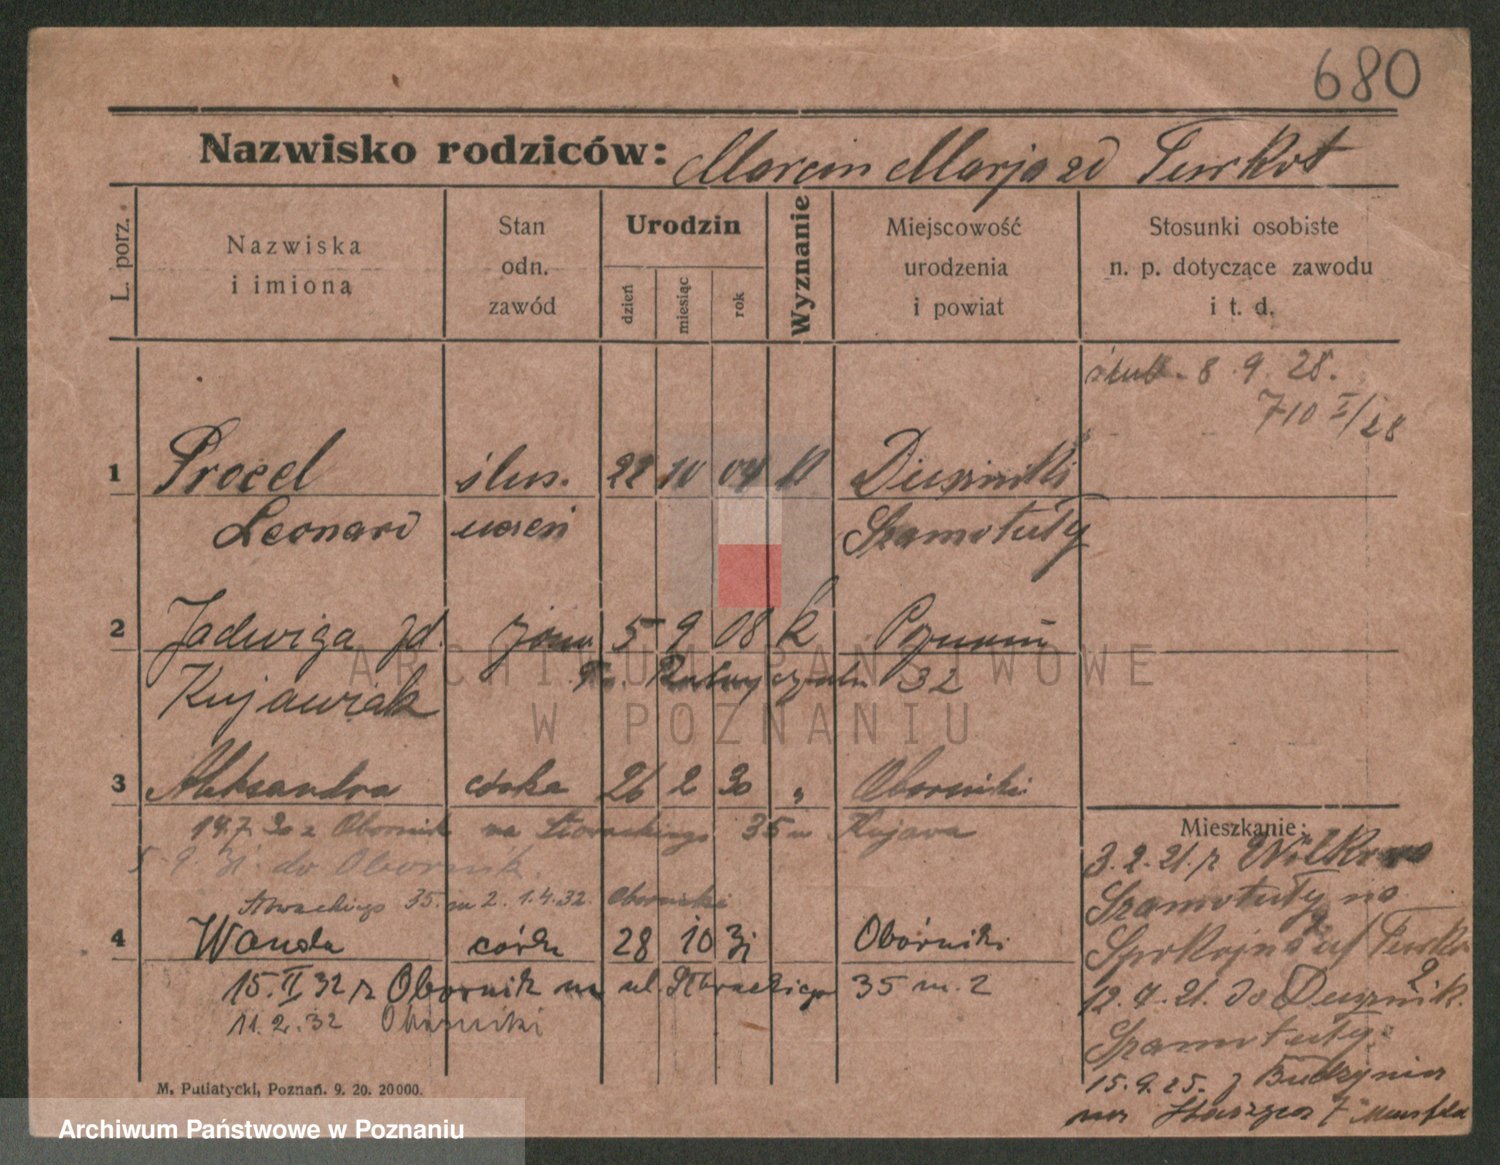 680
Nazwisko rodziców: Marcin Marja zd Turkot
L. porz.
Nazwiska i imiona
Stan odn. zawód
Urodzin
dzień
miesiąc
rok
Wyznanie
Miejscowość urodzenia i powiat
Stosunki osobiste n. p. dotyczące zawodu i t. d.
ślub 8.9.28.
710 I/28
1 Procel ślus. 22 10 04 k Duszniki
Leonard uczeń Szamotuły
2 Jadwiga zd. żona 5 9 08 k Poznań
Kujawiak 32
3 Aleksandra córka 26 2 30 " Oborniki
14.7.30 z Obornik na 35 m Kujawa
5.9.31 do Obornik.
35 m 2. 1.4.32 Oborniki
4 Wanda córka 28 10 31 Oborniki
15.II 32 z Obornik na ul. 35 m. 2
11.2.32 Oborniki
Mieszkanie:
3.2.21. z
Szamotuły na
Spokojna
12.4.21. do Dusznik.
Szamotuły.
15.9.25. z Budzynia
na Staszyca 7
M. Putiatycki, Poznań. 9. 20. 20000.
ARCHIWUM PAŃSTWOWE
W POZNANIU
Archiwum Państwowe w Poznaniu